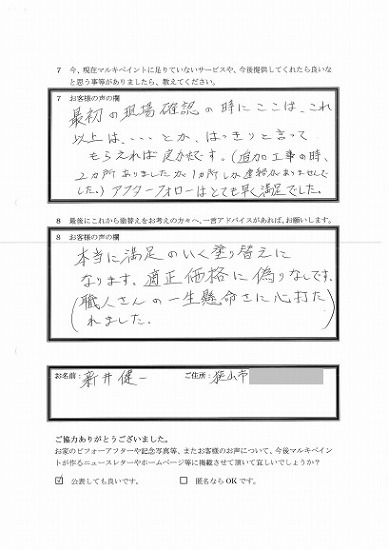 7 今、現在マルキペイントに足りていないサービスや、今後提供してくれたら良いな
と思う事等がありましたら、教えてください。
7 お客様の声の欄
最初の現場確認の時にここは、これ
以上は、・・・とか、はっきりと言って
もらえれば良かったです。(追加工事の時、
2ヵ所ありましたが1ヵ所しか連絡がありませんで
した。)アフターフォローはとても早く満足でした。
8 最後にこれから塗替えをお考えの方々へ、一言アドバイスがあれば、お願いします。
8 お客様の声の欄
本当に満足のいく塗り替えに
なります。適正価格に偽りなしです。
(職人さんの一生懸命さに心打た
れました。)
お名前: 新井健一 ご住所: 狭山市
ご協力ありがとうございました。
お家のビフォーアフターや記念写真等、またお客様のお声について、今後マルキペイント
が作るニュースレターやホームページ等に掲載させて頂いて宜しいでしょうか?
☑ 公表しても良いです。 □ 匿名ならOKです。